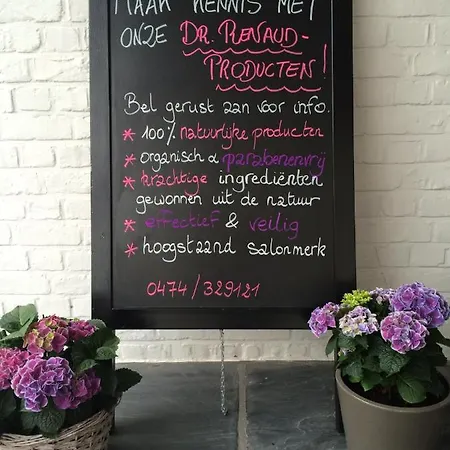 MAAK KENNIS MET
ONZE DR. RENAUD-
PRODUCTEN!
Bel gerust aan voor info.
* 100% natuurlijke producten
* organisch & parabenenvrij
* krachtige ingrediënten
gewonnen uit de natuur
* effectief & veilig
* hoogstaand salonmerk
0474/329121